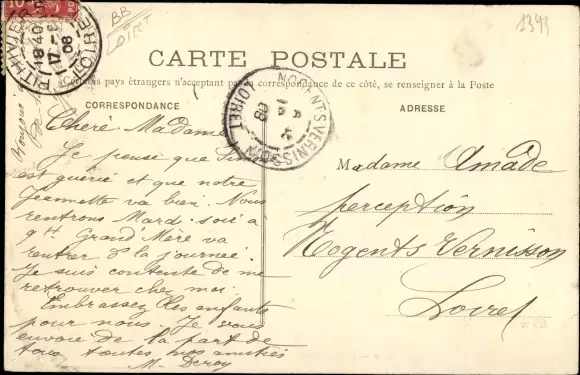 BB
LOIRET
1343
PITHIVIERS
18 40
17
08
LOIRET
CARTE POSTALE
pays étrangers n'acceptant pas la correspondance de ce côté, se renseigner à la Poste
CORRESPONDANCE
ADRESSE
NOGENT S VERNISSON
LOIRET
08
Bonjour
Chere Madame
Je pense que
est guérie et que notre
Jeannette va bien. Nous
rentrons Mard. soir a
9H Grand'Mère va
rentrer de la journée.
Je suis contente de me
retrouver chez moi.
Embrassez les enfants
pour nous. Je vous
envoie de la part de
tous toutes nos amitiés
M. Deroy
Madame Amade
perception
Nogents Vernisson
Loiret